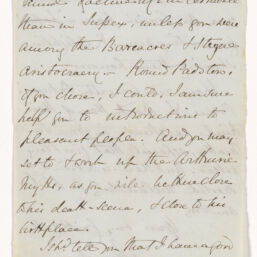 than in Sussex, unless you were
among the Bareacres & Steyne
aristocracy. Round Padstow,
if you chose, I could, I am sure
help you to introductions to
pleasant people. And you may
set to work up the Arthuric
myths, as you will be there close
to his death-scene, & close to his
birthplace.
tell you that I have a good